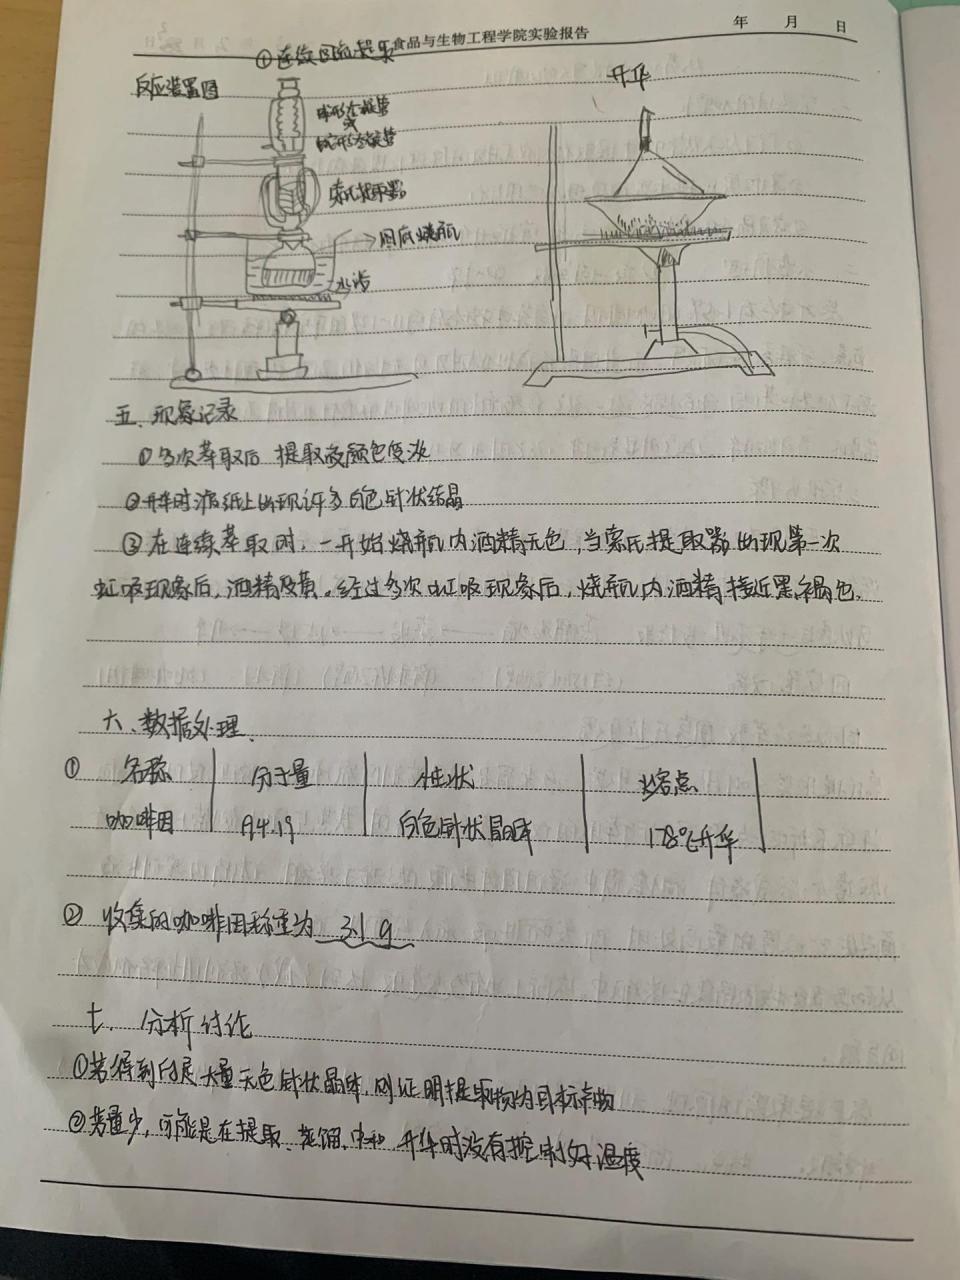 年 月 日
食品与生物工程学院实验报告
①连续回流提取
升华
反应装置图
球形冷凝管
或
蛇形冷凝管
索氏提取器
圆底烧瓶
水浴
五、现象记录
①多次萃取后 提取液颜色变淡
②升华时滤纸上出现许多白色针状结晶
③在连续萃取时,一开始烧瓶内酒精无色,当索氏提取器出现第一次
虹吸现象后,酒精及黄。经过多次虹吸现象后,烧瓶内酒精接近黑褐色.
六、数据处理.
① 名称 分子量 性状 熔点
咖啡因 94.19 白色针状晶体 178℃升华
② 收集的咖啡因称重为 3.1 g
七、分析讨论
①若得到的是大量无色针状晶体,则证明提取物为目标产物
②若量少,可能是在提取、蒸馏、中和 升华时没有控制好温度